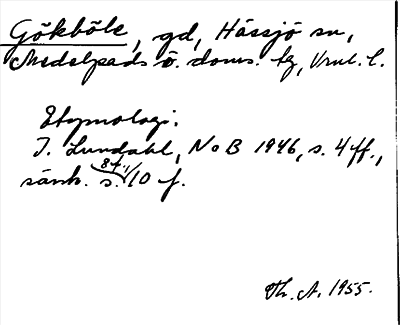 Gökböle, gd, Hässjö sn,
Medelpads ö. doms. tg, Vnl. l.
Etymologi.
I. Lundahl, NoB 1946, s. 4 ff.,
särsk. s. 8 f., 10 f.
Th. A. 1955.